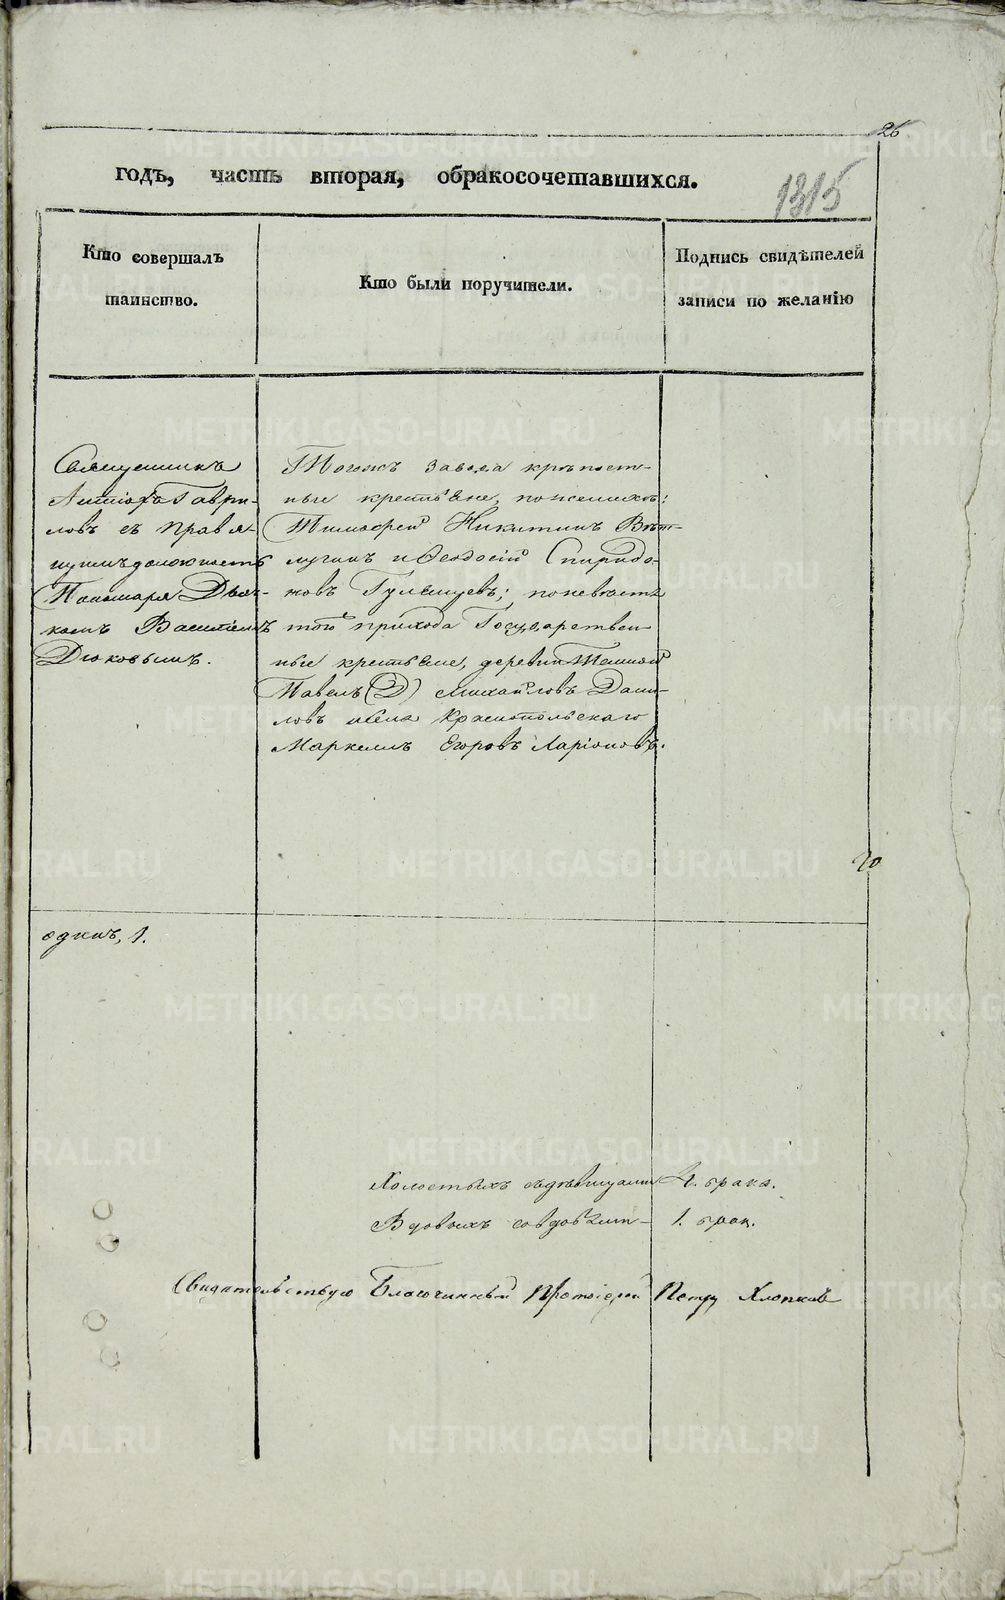 26
годъ, часть вторая, обракосочетавшихся.
1315
Кто совершалъ
таинство.
Кто были поручители.
Подпись свидѣтелей
записи по желанію
Священникъ
Гаври-
ловъ съ правя-
щимъ должность
Пономаря Дьяч-
комъ Василіемъ
Дюковымъ.
Тогожъ завода крѣпост-
ные крестьяне, по женихѣ:
Тимофей Никитинъ Вѣт-
лугинъ и Ѳеодосій Спиридо-
новъ Гулящевъ; по невѣстѣ
того прихода Государствен-
ные крестьяне, деревни Темной
Павелъ (Д) Михайловъ Дани-
ловъ и села Краснопольскаго
Маркелъ Егоровъ Ларіоновъ.
одинъ, 1.
Холостыхъ съ дѣвицами 4. брака.
Вдовыхъ 1. брак.
Свидетельствую Благочинный Протоіерей Петръ Хлопковъ
METRIKI.GASO-URAL.RU